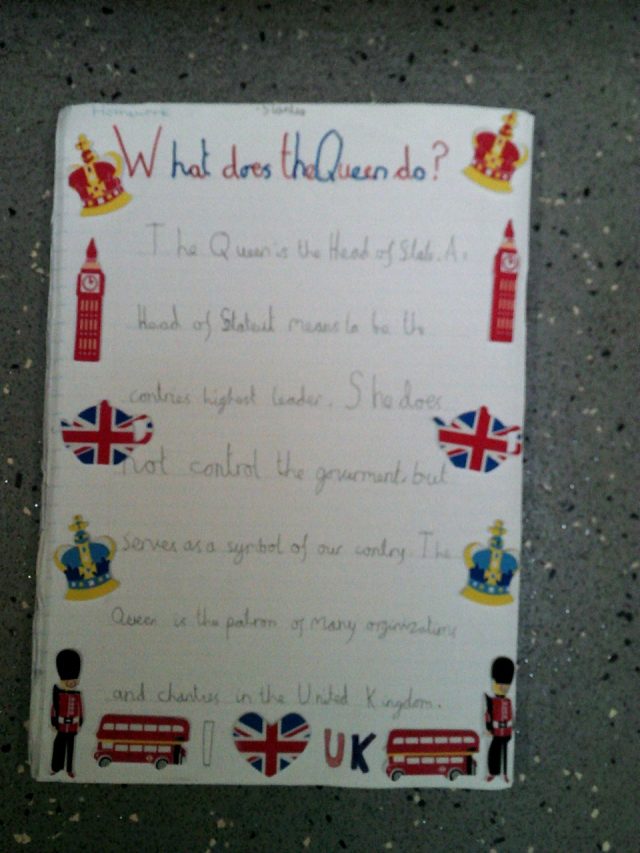 Homework
What does the Queen do?
The Queen is the Head of State. A
Head of State it means to be the
contries highest leader. She does
not control the goverment, but
serves as a symbol of our contry. The
Queen is the patron of many orginizations
and charities in the United Kingdom.
I UK